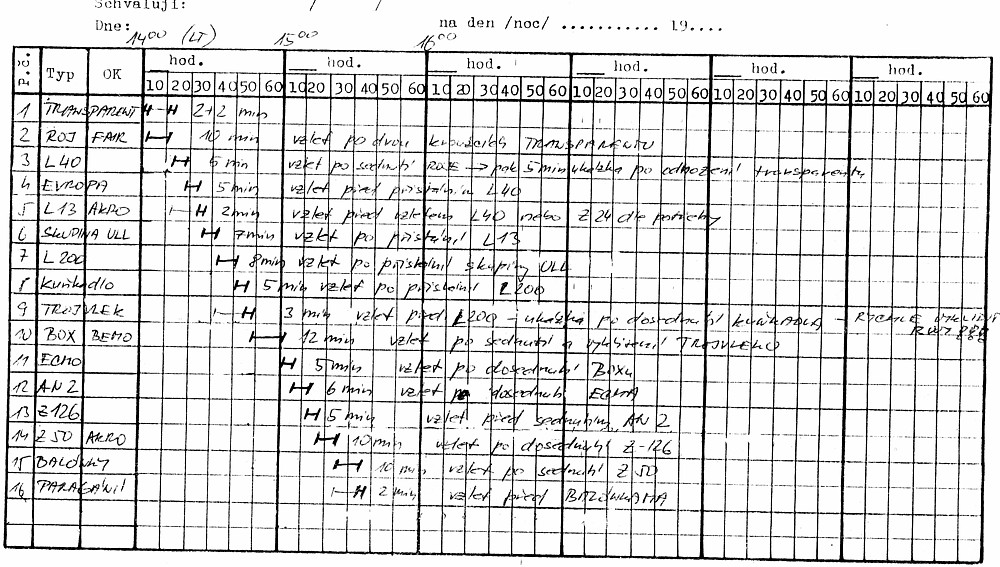 Schvalují: / /
Dne: na den /noc/ ........... 19....
14⁰⁰ (LT) 15⁰⁰ 16⁰⁰
p.č. Typ OK hod. hod. hod. hod. hod. hod.
10 20 30 40 50 60 10 20 30 40 50 60 10 20 30 40 50 60 10 20 30 40 50 60 10 20 30 40 50 60 10 20 30 40 50 60
1 TRANSPARENT 2+2 min
2 ROJ FAIR 10 min vzlet po dvou kroužcích TRANSPARENTU
3 L40 5 min vzlet po sednutí ROJE → pak 5 min ukázka po odhození transparentu
4 EVROPA 5 min vzlet před přistáním L40
5 L13 AKRO 2 min vzlet před vzletem L40 nebo Z24 dle potřeby
6 SKUPINA ULL 7 min vzlet po přistání L13
7 L200 8 min vzlet po přistání skupiny ULL
8 Kuňkadlo 5 min vzlet po přistání L200
9 TROJVLEK 3 min vzlet před L200 - ukázka po dosednutí KUŇKADLA - RYCHLE
10 BOX BEMO 12 min vzlet po sednutí a TROJVLEKU
11 ECHO 5 min vzlet po dosednutí Boxu
12 AN 2 6 min vzlet po dosednutí ECHA
13 Z126 5 min vzlet před sednutím AN 2
14 Z 50 AKRO 10 min vzlet po dosednutí Z-126
15 BALÓNKY 10 min vzlet po sednutí Z 50
16 PARAGÁNI 2 min vzlet před BALÓNKAMA